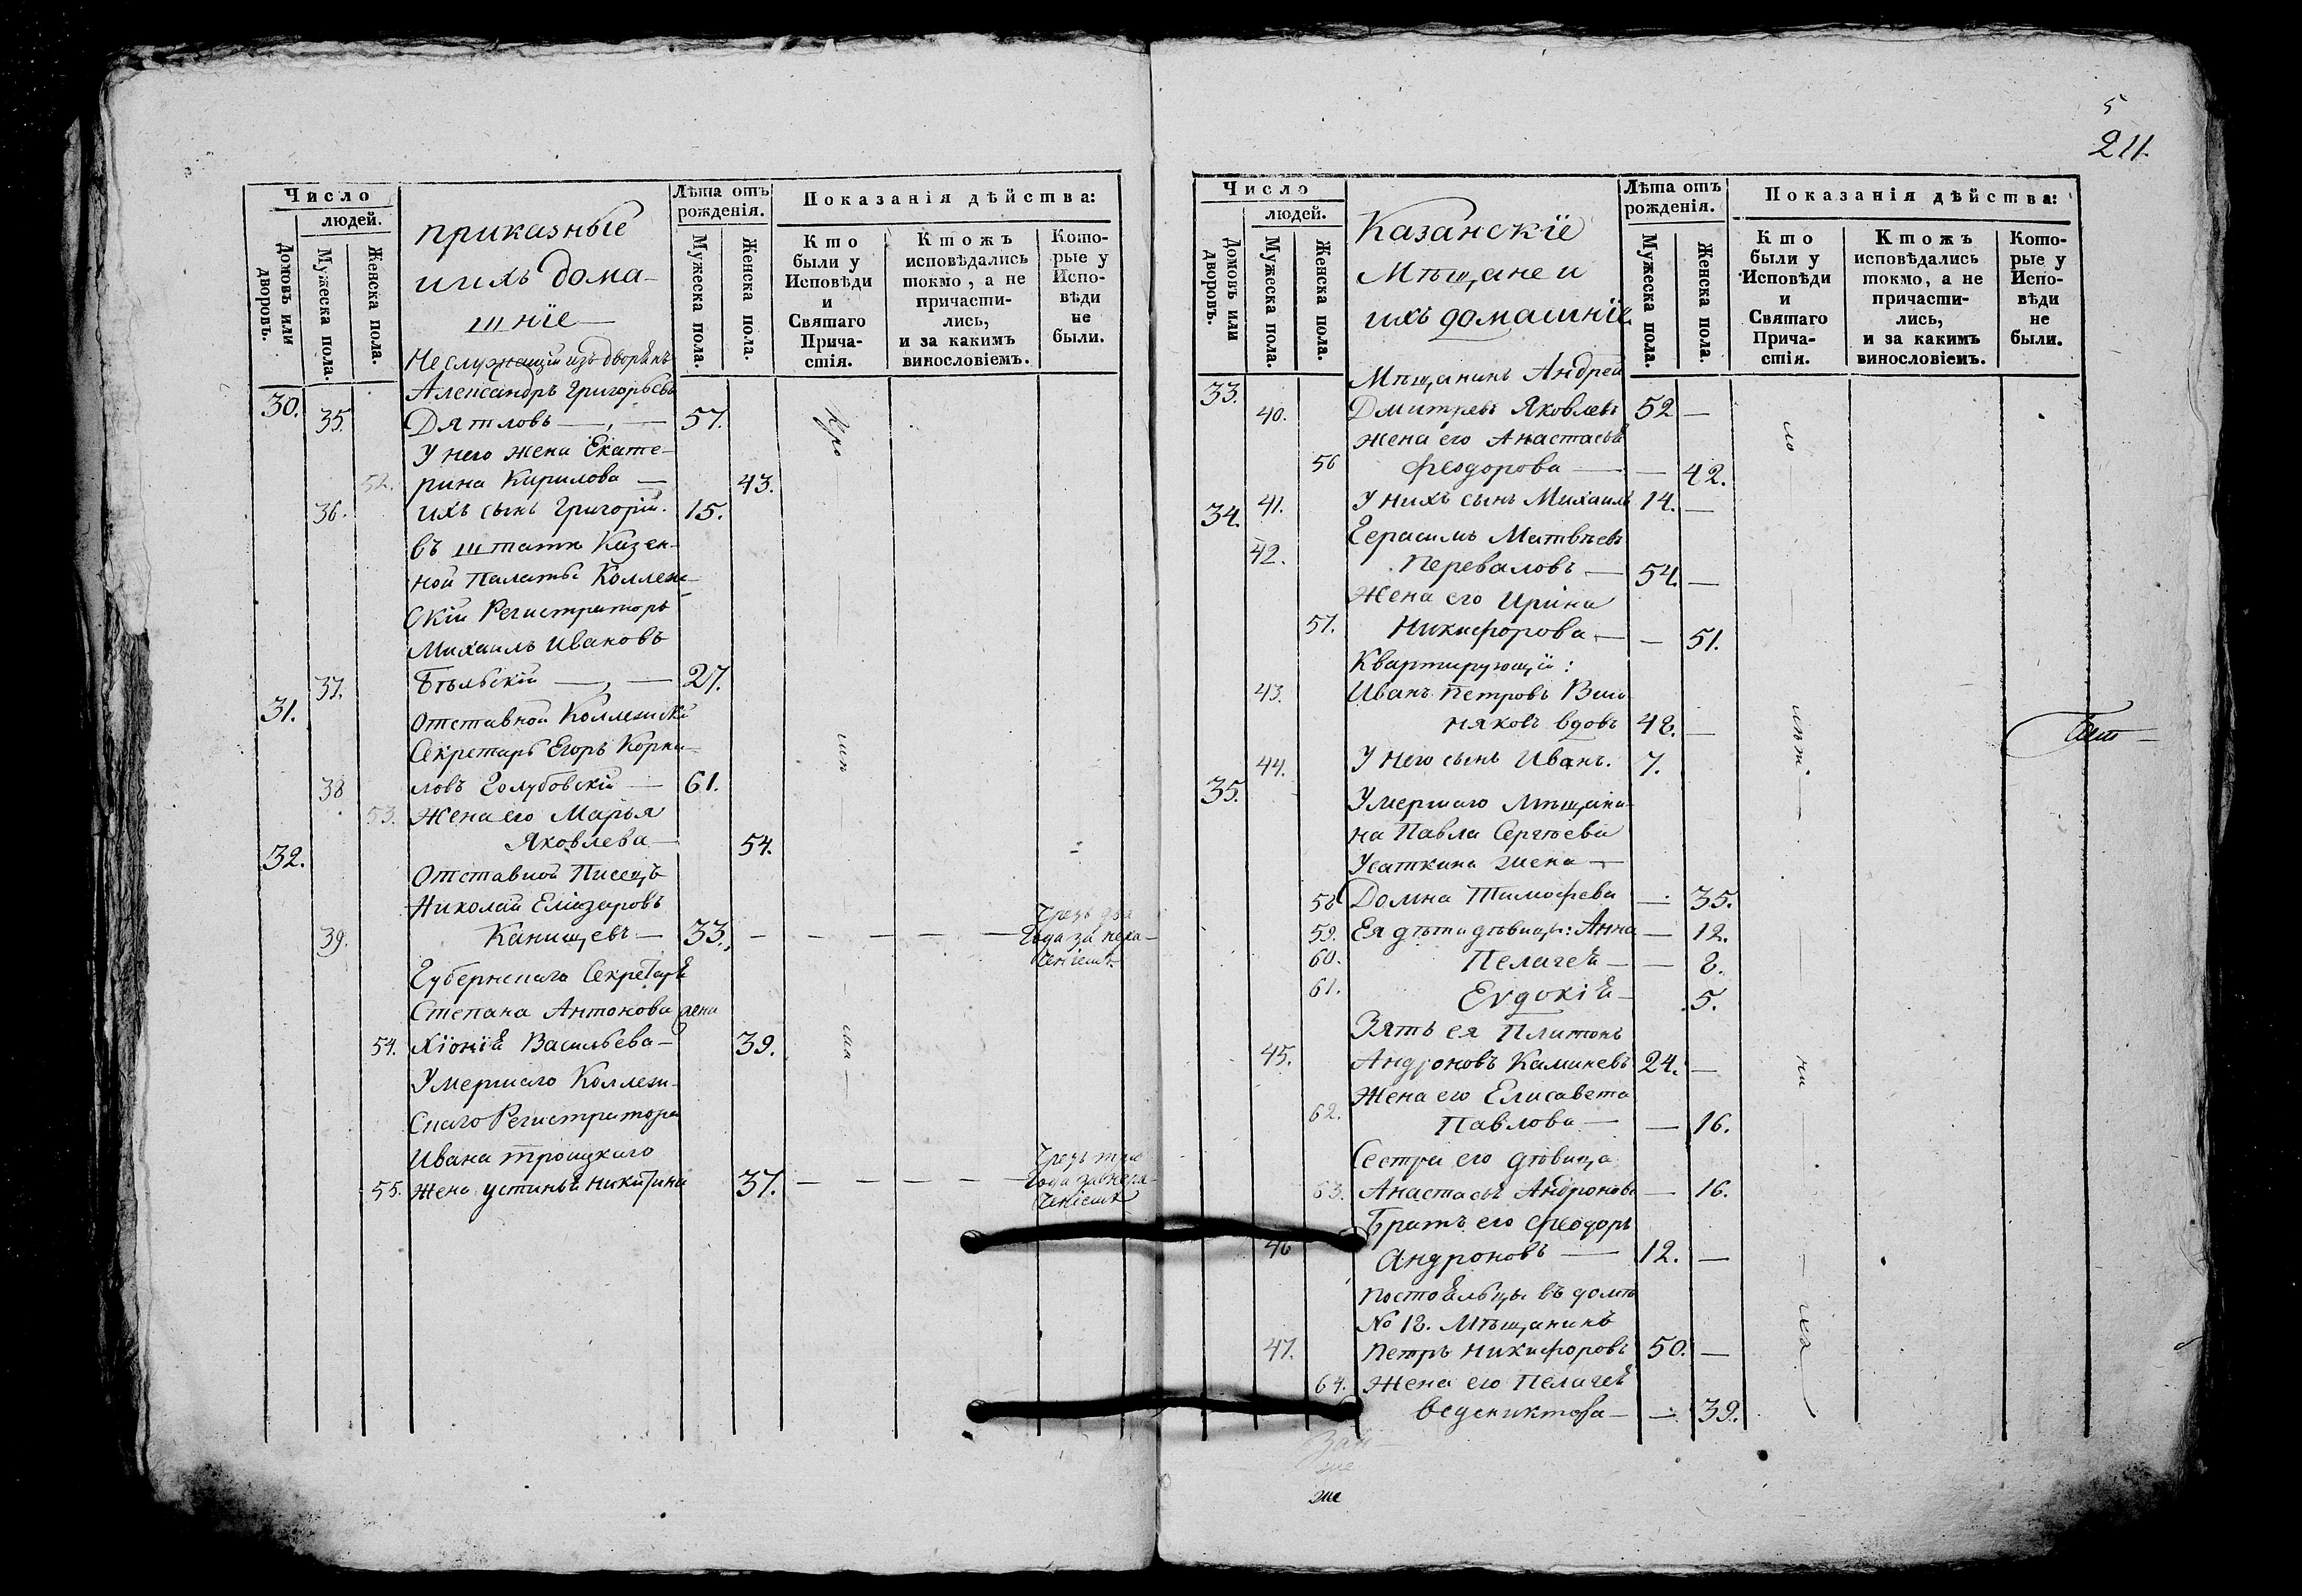 Число
людей.
Домовъ или дворовъ.
Мужеска пола.
Женска пола.
Приказные
и ихъ дома-
шніе
Неслужащій изъ дворянъ
Лѣта отъ
рожденія.
Мужеска пола.
Женска пола.
Показанія дѣйства:
Кто
были у
Исповѣди
и
Святаго
Прича-
стія.
Ктожъ
исповѣдались
токмо, а не
причасти-
лись,
и за какимъ
винословіемъ.
Кото-
рые у
Испо-
вѣди
не
были.
Александръ Григорьевъ
30. 35. Дятловъ — 57.
У него жена Екате-
52. рина Кирилова — 43.
36. ихъ сынъ Григорій. 15.
въ штатѣ Казен-
ной Палаты Коллеж-
скій Регистраторъ
Михаилъ Ивановъ
37. Бѣльскій — 27.
31. Отставной Коллежскій
Секретарь Егоръ Корни-
38 ловъ Голубовскій — 61.
53. Жена его Марья
Яковлева — 54.
32. Отставной Писецъ
Николай Елиазаровъ
39. Канищевъ — 33. — — — — —
Чрезъ два
года за нера-
ченіемъ
Губернскаго Секретаря
Степана Антонова жена
54. Хіонія Васильева — 39.
Умершаго Коллеж-
скаго Регистратора
Ивана Троицкаго
55. жена Устинья Никитина 37. — — — — —
Чрезъ три
года за нера-
ченіемъ
5
211.
Число
людей.
Домовъ или дворовъ.
Мужеска пола.
Женска пола.
Казанскіе
Мѣщане и
ихъ домашніе
Лѣта отъ
рожденія.
Мужеска пола.
Женска пола.
Показанія дѣйства:
Кто
были у
Исповѣди
и
Святаго
Прича-
стія.
Ктожъ
исповѣдались
токмо, а не
причасти-
лись,
и за какимъ
винословіемъ.
Кото-
рые у
Испо-
вѣди
не
были.
33. Мѣщанинъ Андрей
40. Дмитревъ Яковлевъ 52 —
жена его Анастасья
56 Феодорова — — 42.
41. У нихъ сынъ Михаилъ 14. —
34. Герасимъ Матвѣевъ
42. Переваловъ — 54. —
Жена его Ирина
57. Никифорова — — 51.
Квартирующій:
43. Иванъ Петровъ Виш-
няковъ вдовъ 48. —
44. У него сынъ Иванъ. 7.
35. Умершаго Мѣщани-
на Павла Сергѣева
Усаткина жена —
58 Домна Тимофева — 35.
59. Ея дѣти дѣвицы: Анна — 12.
60. Пелагея — — 8.
61. Евдокія — 5.
Зять ея Платонъ
45. Андроновъ Калиневъ 24. —
Жена его Елисавета
62. Павлова — — 16.
Сестра его дѣвица
63. Анастасья Андронова — 16.
Братъ его Феодоръ
46 Андроновъ — 12. —
Постояльцы въ домѣ
№ 18. Мѣщанинъ
47. Петръ Никифоровъ 50. —
64. Жена его Пелагея
Ведениктова — — 39.
же